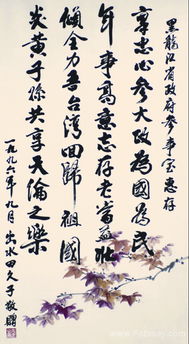 黑龍江省政府参事室惠存
忠心参大政為國為民
年事高意志存老當益壯
傾全力吾台湾回歸祖國
炎黄子孫共享天倫之樂
一九九六年九月 出水田久子敬